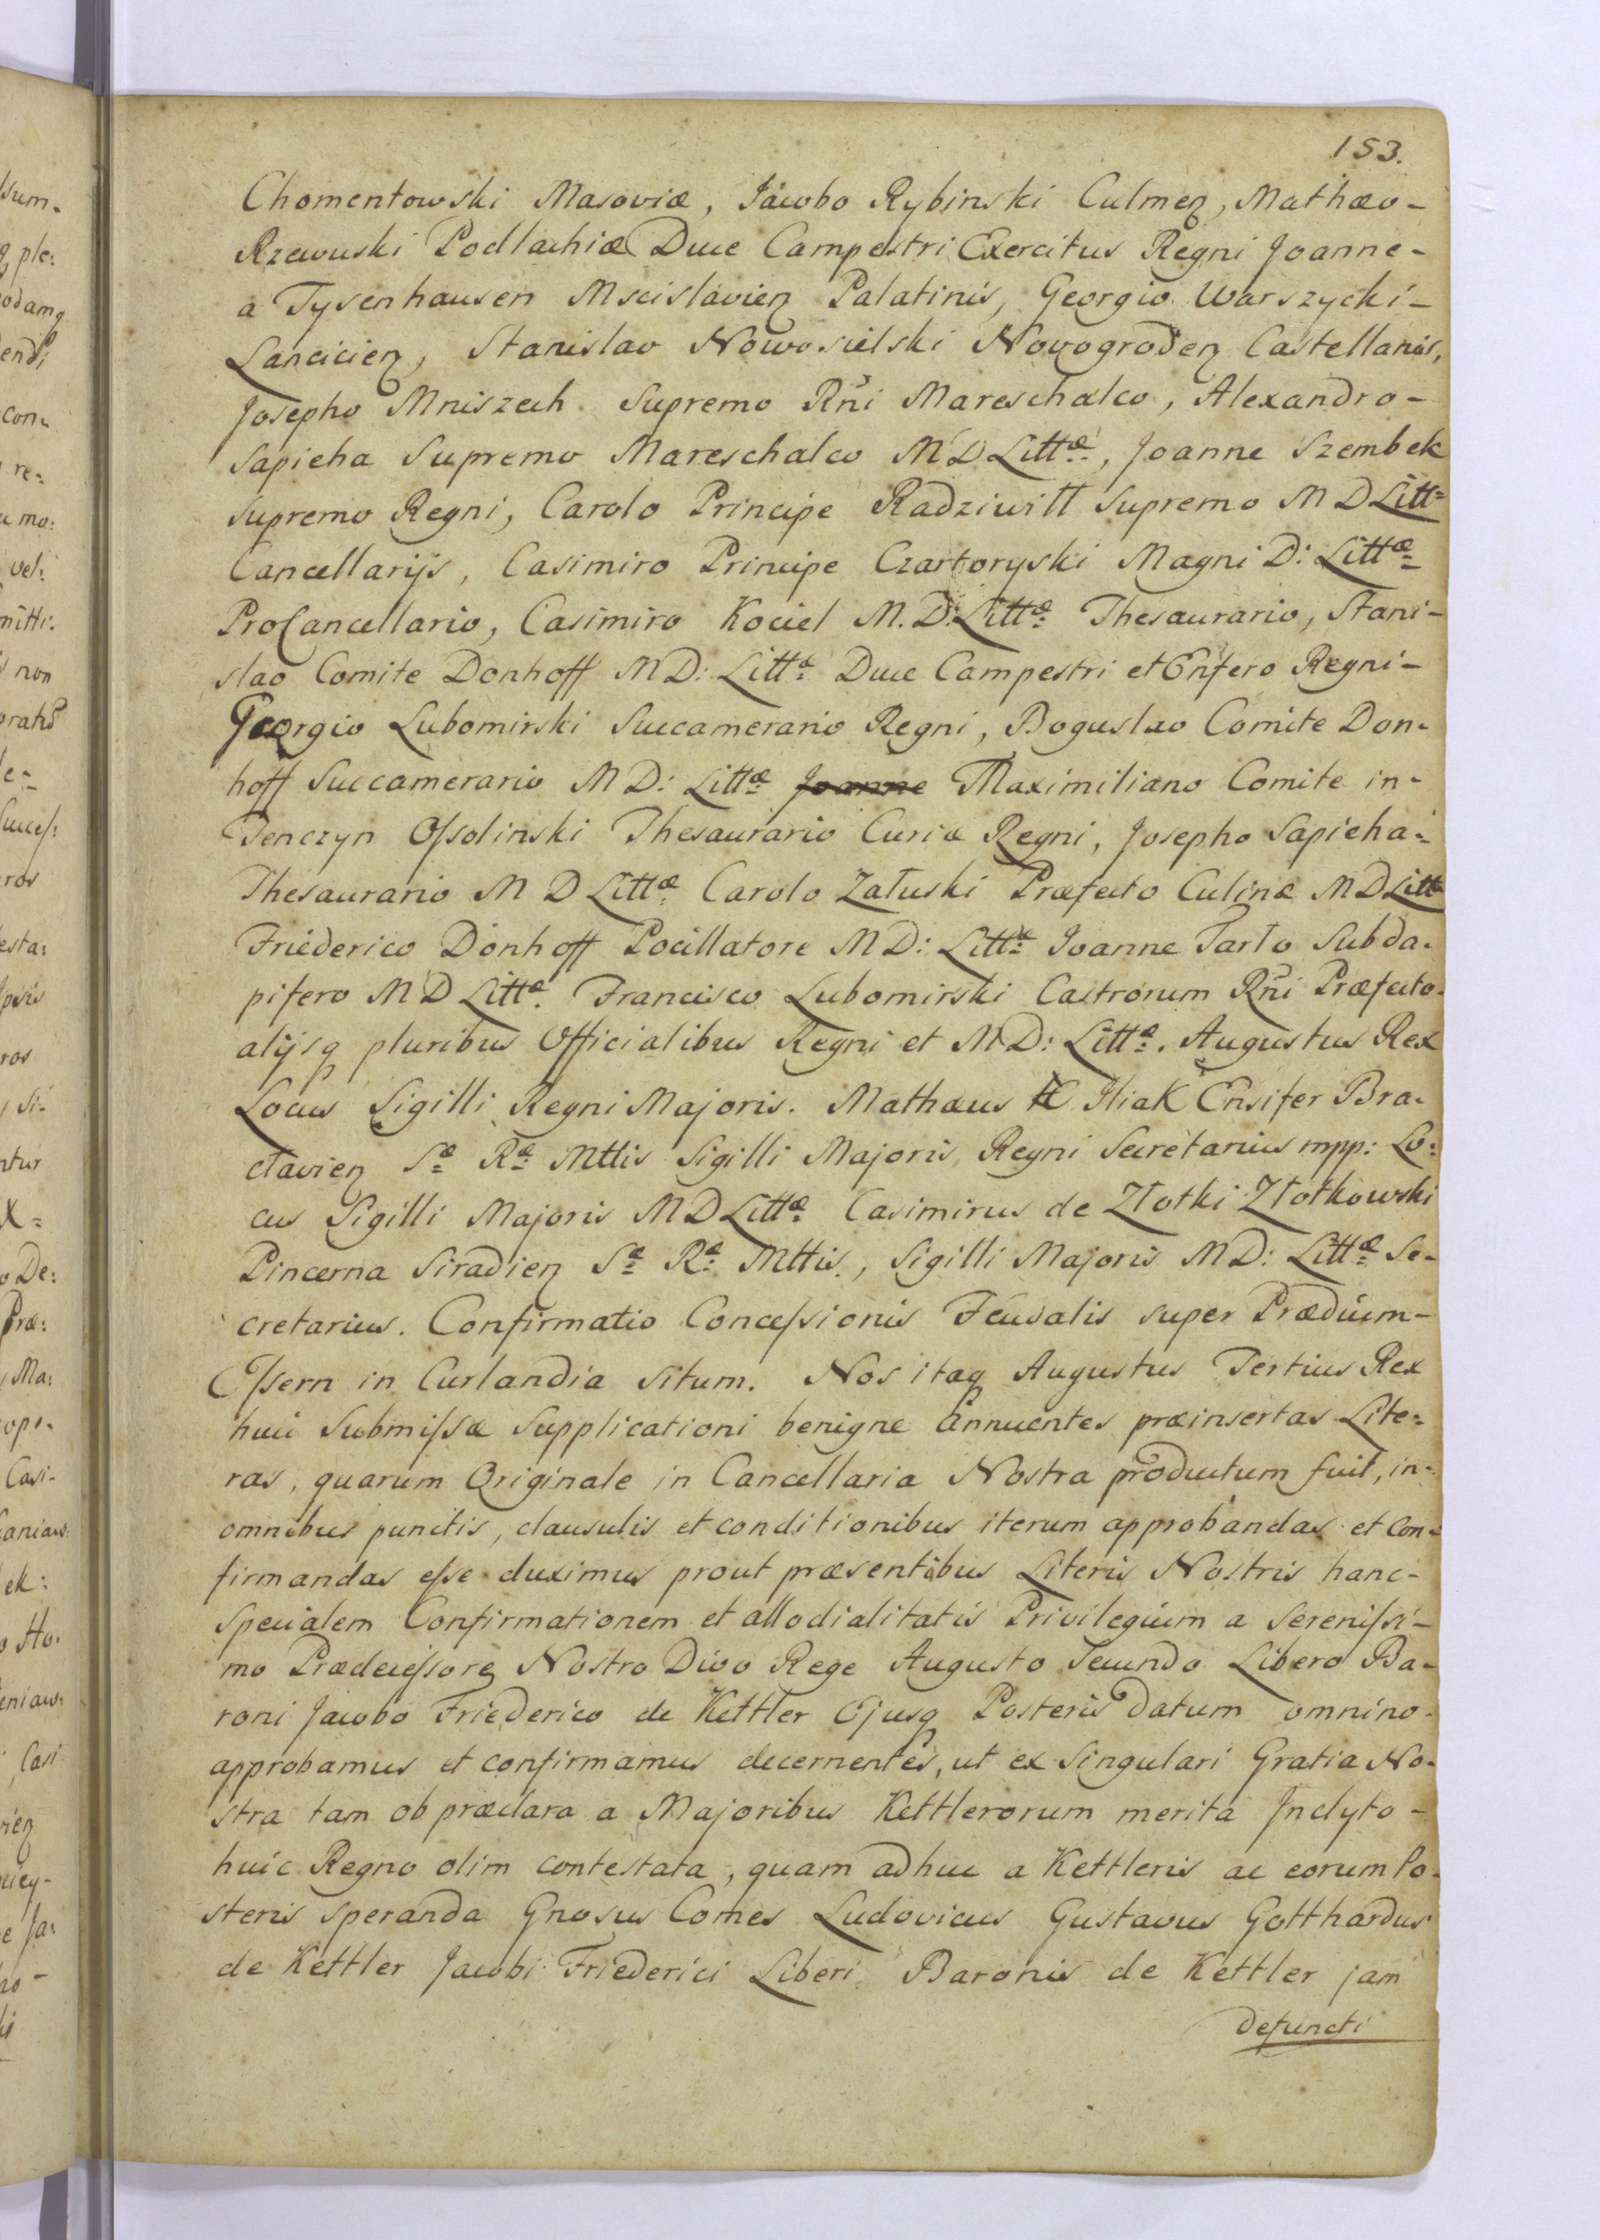 153.
Chomentowski Masoviæ, Jacobo Rybinski Culmeꝫ, Mathæo-
Rzewuski Podlachiæ Duce Campestri Exercitus Regni Joanne-
a Tysenhausen Mscislavieꝫ Palatinis, Georgio Warszycki-
Lancicieꝫ, Stanislao Nowosielski Novogrodeꝫ Castellanis,
Josepho Mniszech Supremo Rñi Mareschalco, Alexandro-
Sapieha Supremo Mareschalco M D Littæ, Joanne Szembek
supremo Regni, Carolo Principe Radziwiłł Supremo M D Litt=
Cancellarijs, Casimiro Principe Czartoryski Magni D: Littæ
ProCancellario, Casimiro Kociel M. D: Littæ Thesaurario, Stani-
slao Comite Donhoff M D: Littæ Duce Campestri et Ensfero Regni-
Georgio Lubomirski Succamerario Regni, Boguslao Comite Don-
hoff Succamerario M D: Littæ Joanne Maximiliano Comite in-
Tenczyn Ossolinski Thesaurario Curiæ Regni, Josepho Sapieha-
Thesaurario M D Littæ Carolo Załuski Præfecto Culinæ M D Litt
Friederico Dönhoff Pocillatore M D: Littæ Joanne Tarło Subda-
pifero M D Littæ. Francisco Lubomirski Castrorum Rñi Præfecto-
alijsq pluribus Officialibus Regni et M D: Littæ. Augustus Rex
Locus Sigilli Regni Majoris. Mathæus Iliak Ensifer Bra-
clavieꝫ Sæ Ræ Mttis Sigilli Majoris Regni Secretarius mpp: Lo-
cus Sigilli Majoris M D Littæ Casimirus de Złotki Złotkowski
Pincerna Siradieꝫ Sæ Ræ Mttis, Sigilli Majoris M D: Littæ Se-
cretarius. Confirmatio Concessionis Feudalis super Prædium-
Essern in Curlandia situm. Nos itaq Augustus Tertius Rex
huic Submissæ Supplicationi benigne annuentes præinsertas Lite-
ras, quarum Originale in Cancellaria Nostra productum fuit, in-
omnibus punctis, clausulis et conditionibus iterum approbandas et Con-
firmandas esse duximus prout præsentibus Literis Nostris hanc-
specialem Confirmationem et allodialitatis Privilegium a Serenissi-
mo Prædecessore Nostro Divo Rege Augusto Secundo Libero Ba-
roni Jacobo Friederico de Kettler Ejusq Posteris datum omnino-
approbamus et confirmamus decernentes, ut ex singulari Gratia No-
stra tam ob præclara a Majoribus Kettlerorum merita Inclyto-
huic Regno olim contestata, quam adhuc a Kettleris ac eorum Po-
steris speranda Gnosus Comes Ludovicus Gustavus Gotthardus
de Kettler Jacobi Friederici Liberi Baronis de Kettler jam
defuncti